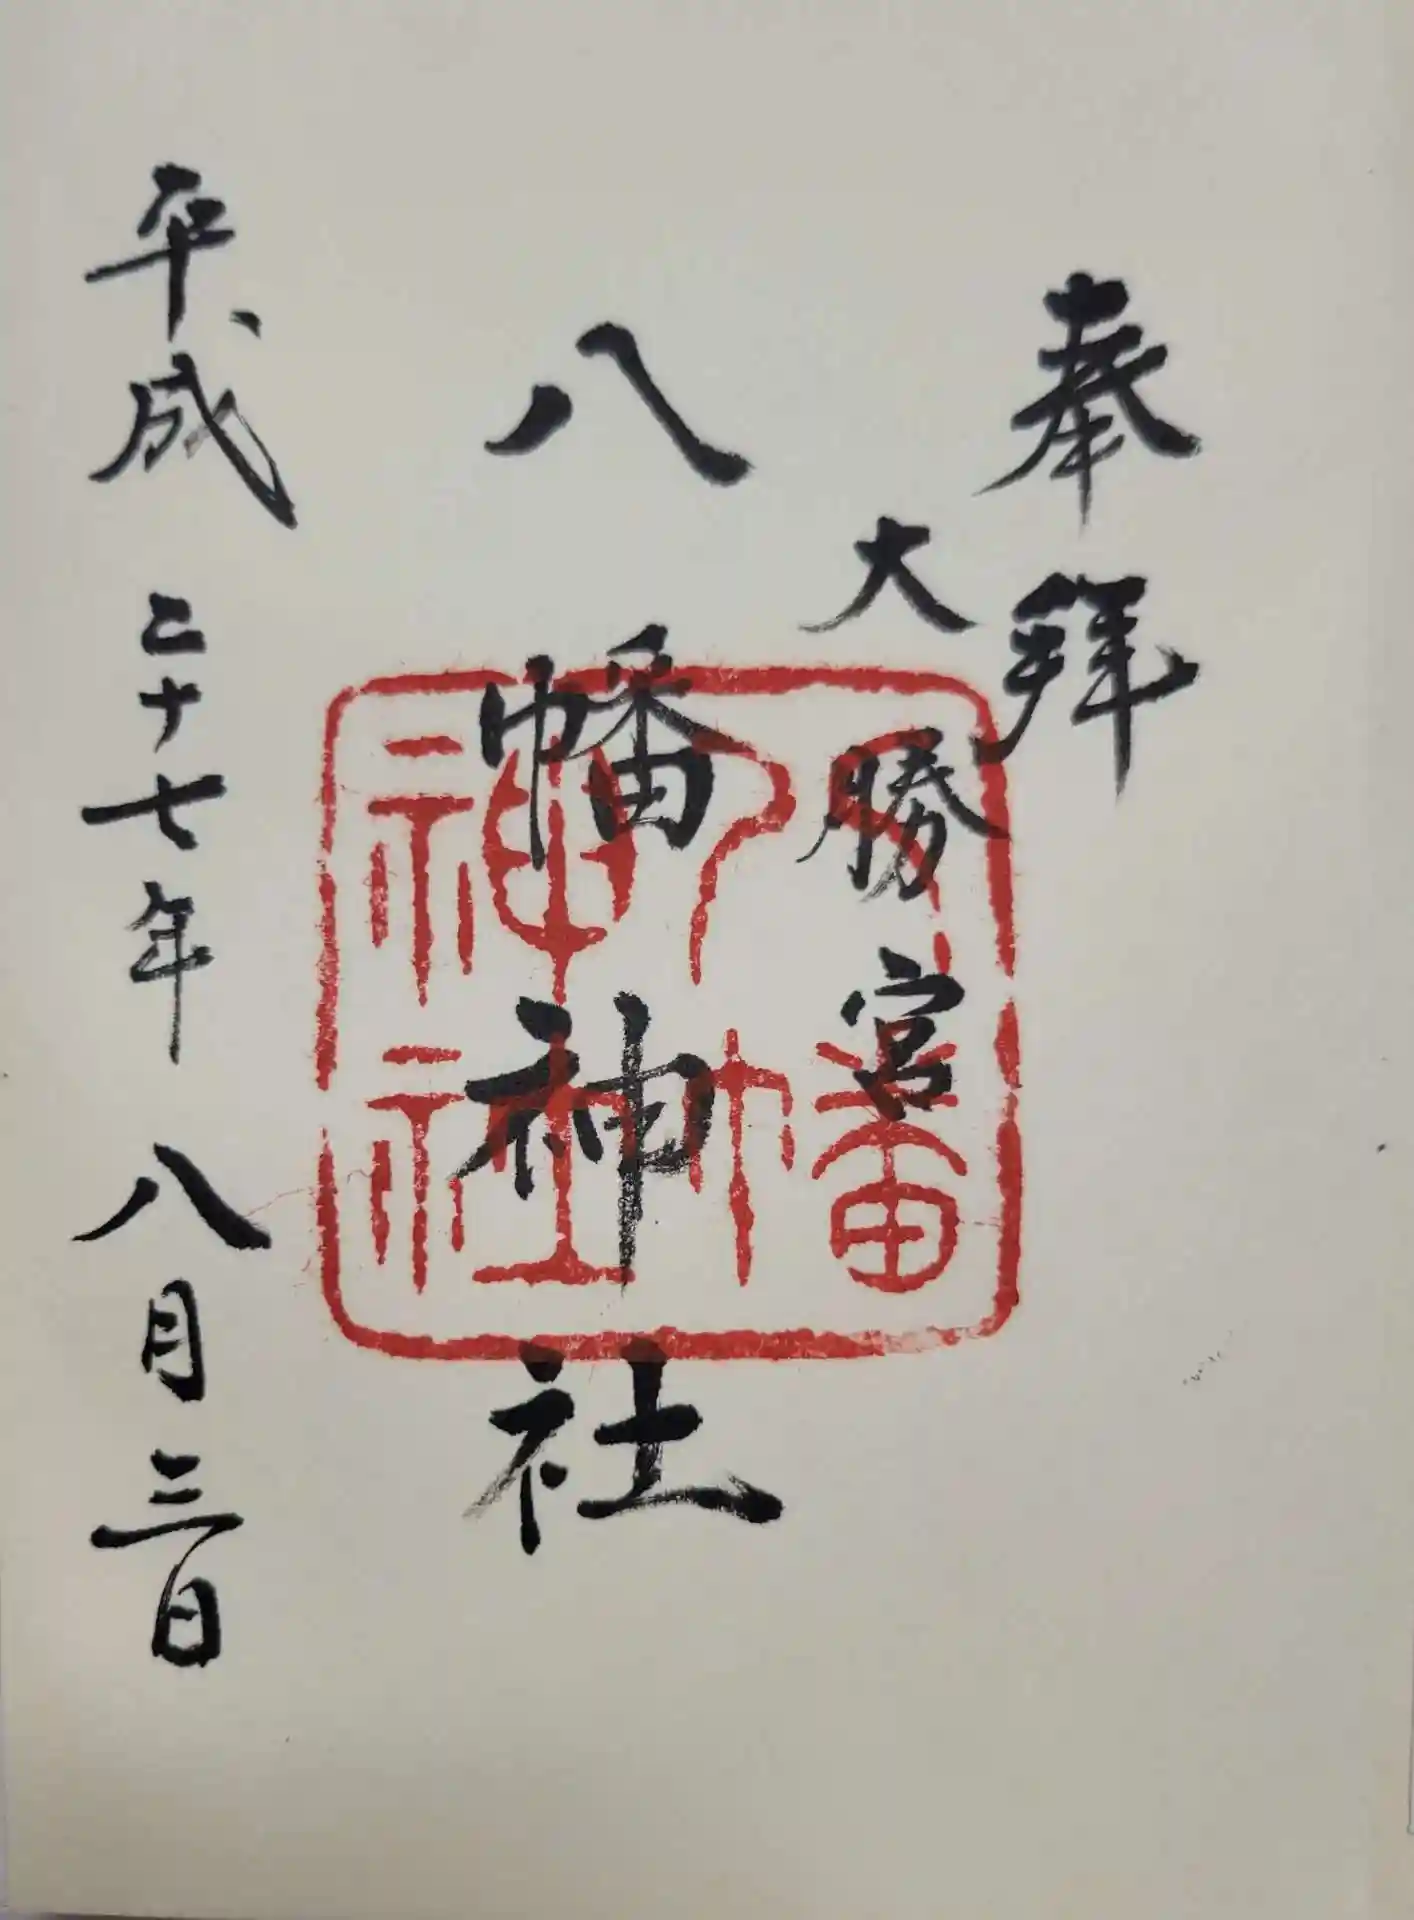 奉拜
大勝宮
八幡神社
平成二十七年八月三日
八幡神社